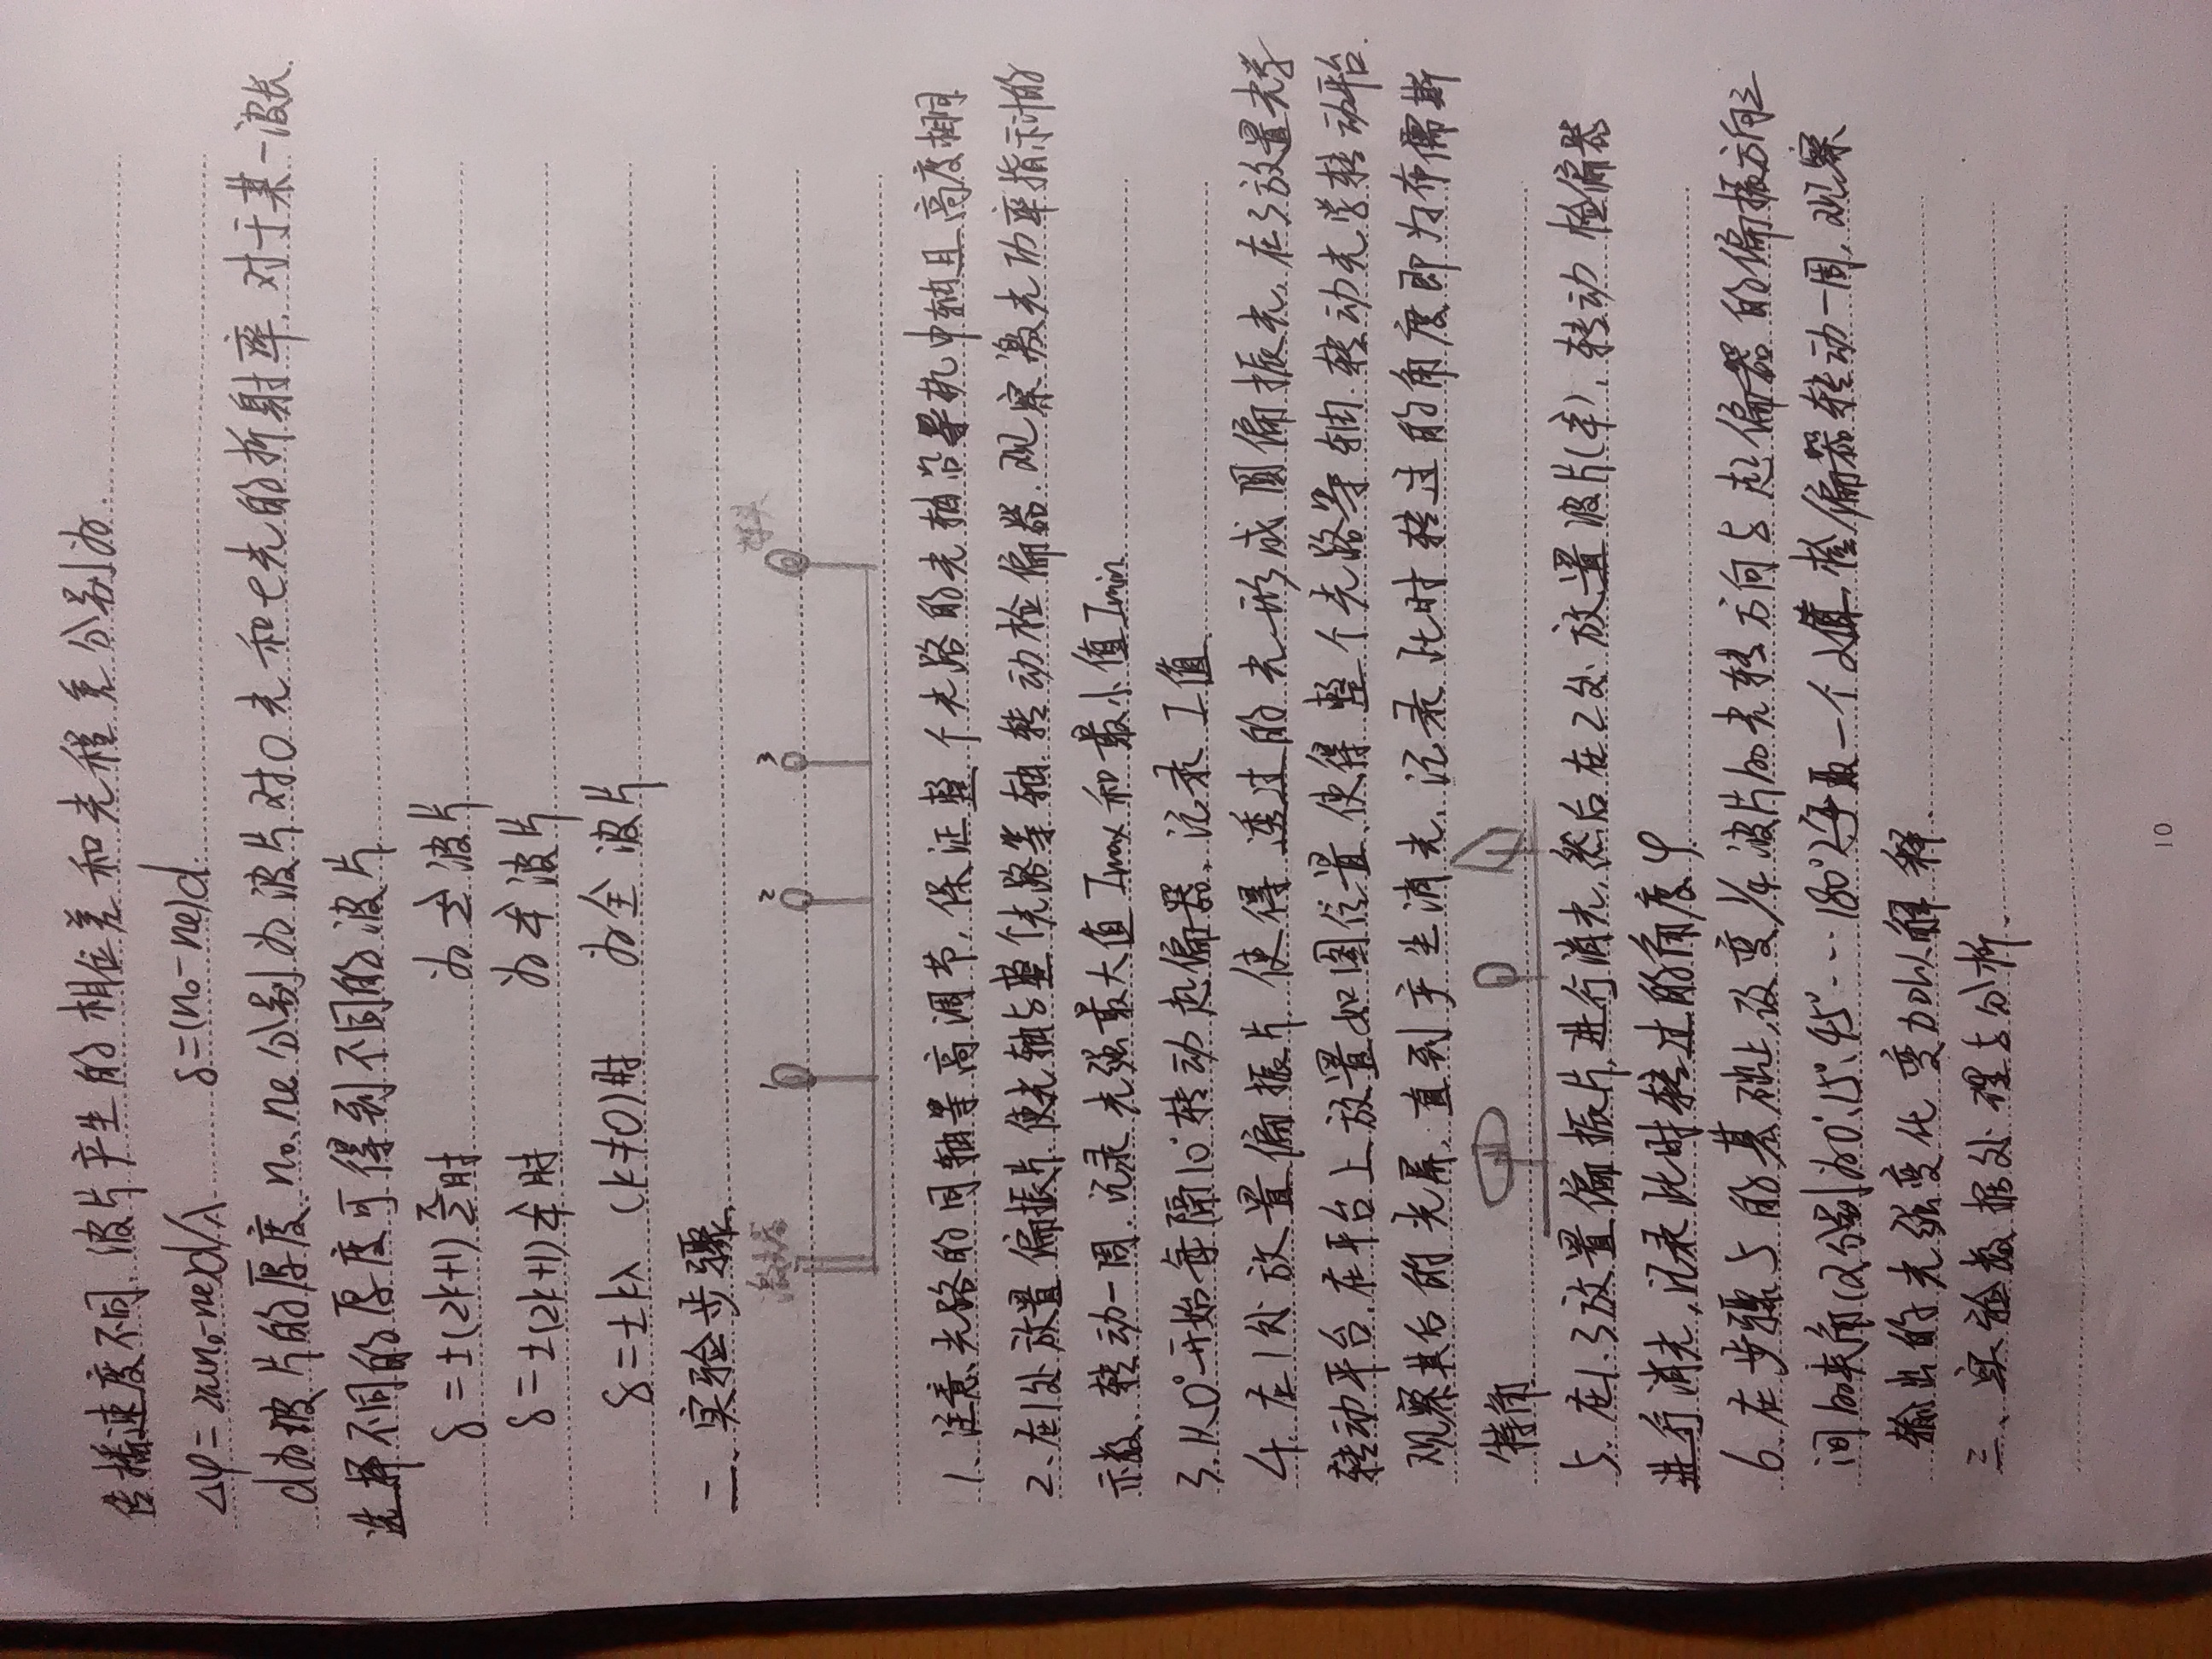 传播速度不同,波片产生的相位差和光程差分别为
Δφ=2π(n₀-ne)d/λ δ=(n₀-ne)d
d为波片的厚度,n₀、ne分别为波片对O光和e光的折射率,对于某一波长
选择不同的厚度可得到不同的波片
δ=±(2k+1)λ/2时 为λ/2波片
δ=±(2k+1)λ/4时 为λ/4波片
δ=±kλ (k≠0)时 为全波片
二、实验步骤
激光器 1 2 3 探头
1、注意光路的同轴等高调节,保证整个光路的光轴沿导轨中轴且高度相同
2、在1处放置偏振片,使光轴与整个光路等轴,转动检偏器,观察激光功率指示计的
示数,转动一周,记录光强最大值Imax和最小值Imin
3、从0°开始每隔10°转动起偏器,记录I值
4、在1处放置偏振片,使得透过的光形成圆偏振光,在3放置光学
转动平台,在平台上放置如图位置,使得整个光路等轴,转动光学转动平台
观察其后的光屏,直到产生消光,记录此时转过的角度即为布儒斯
特角
5、在1、3放置偏振片,进行消光,然后在2处放置波片(λ/2),转动检偏器
进行消光,记录此时转过的角度φ
6、在步骤5的基础上,改变1/4波片的光轴方向与起偏器的偏振方向之
间的夹角(α分别为0°、15°、45°…180°)每取一个α值,检偏器转动一周,观察
输出的光强变化,变力以解释
三、实验数据处理与分析
10